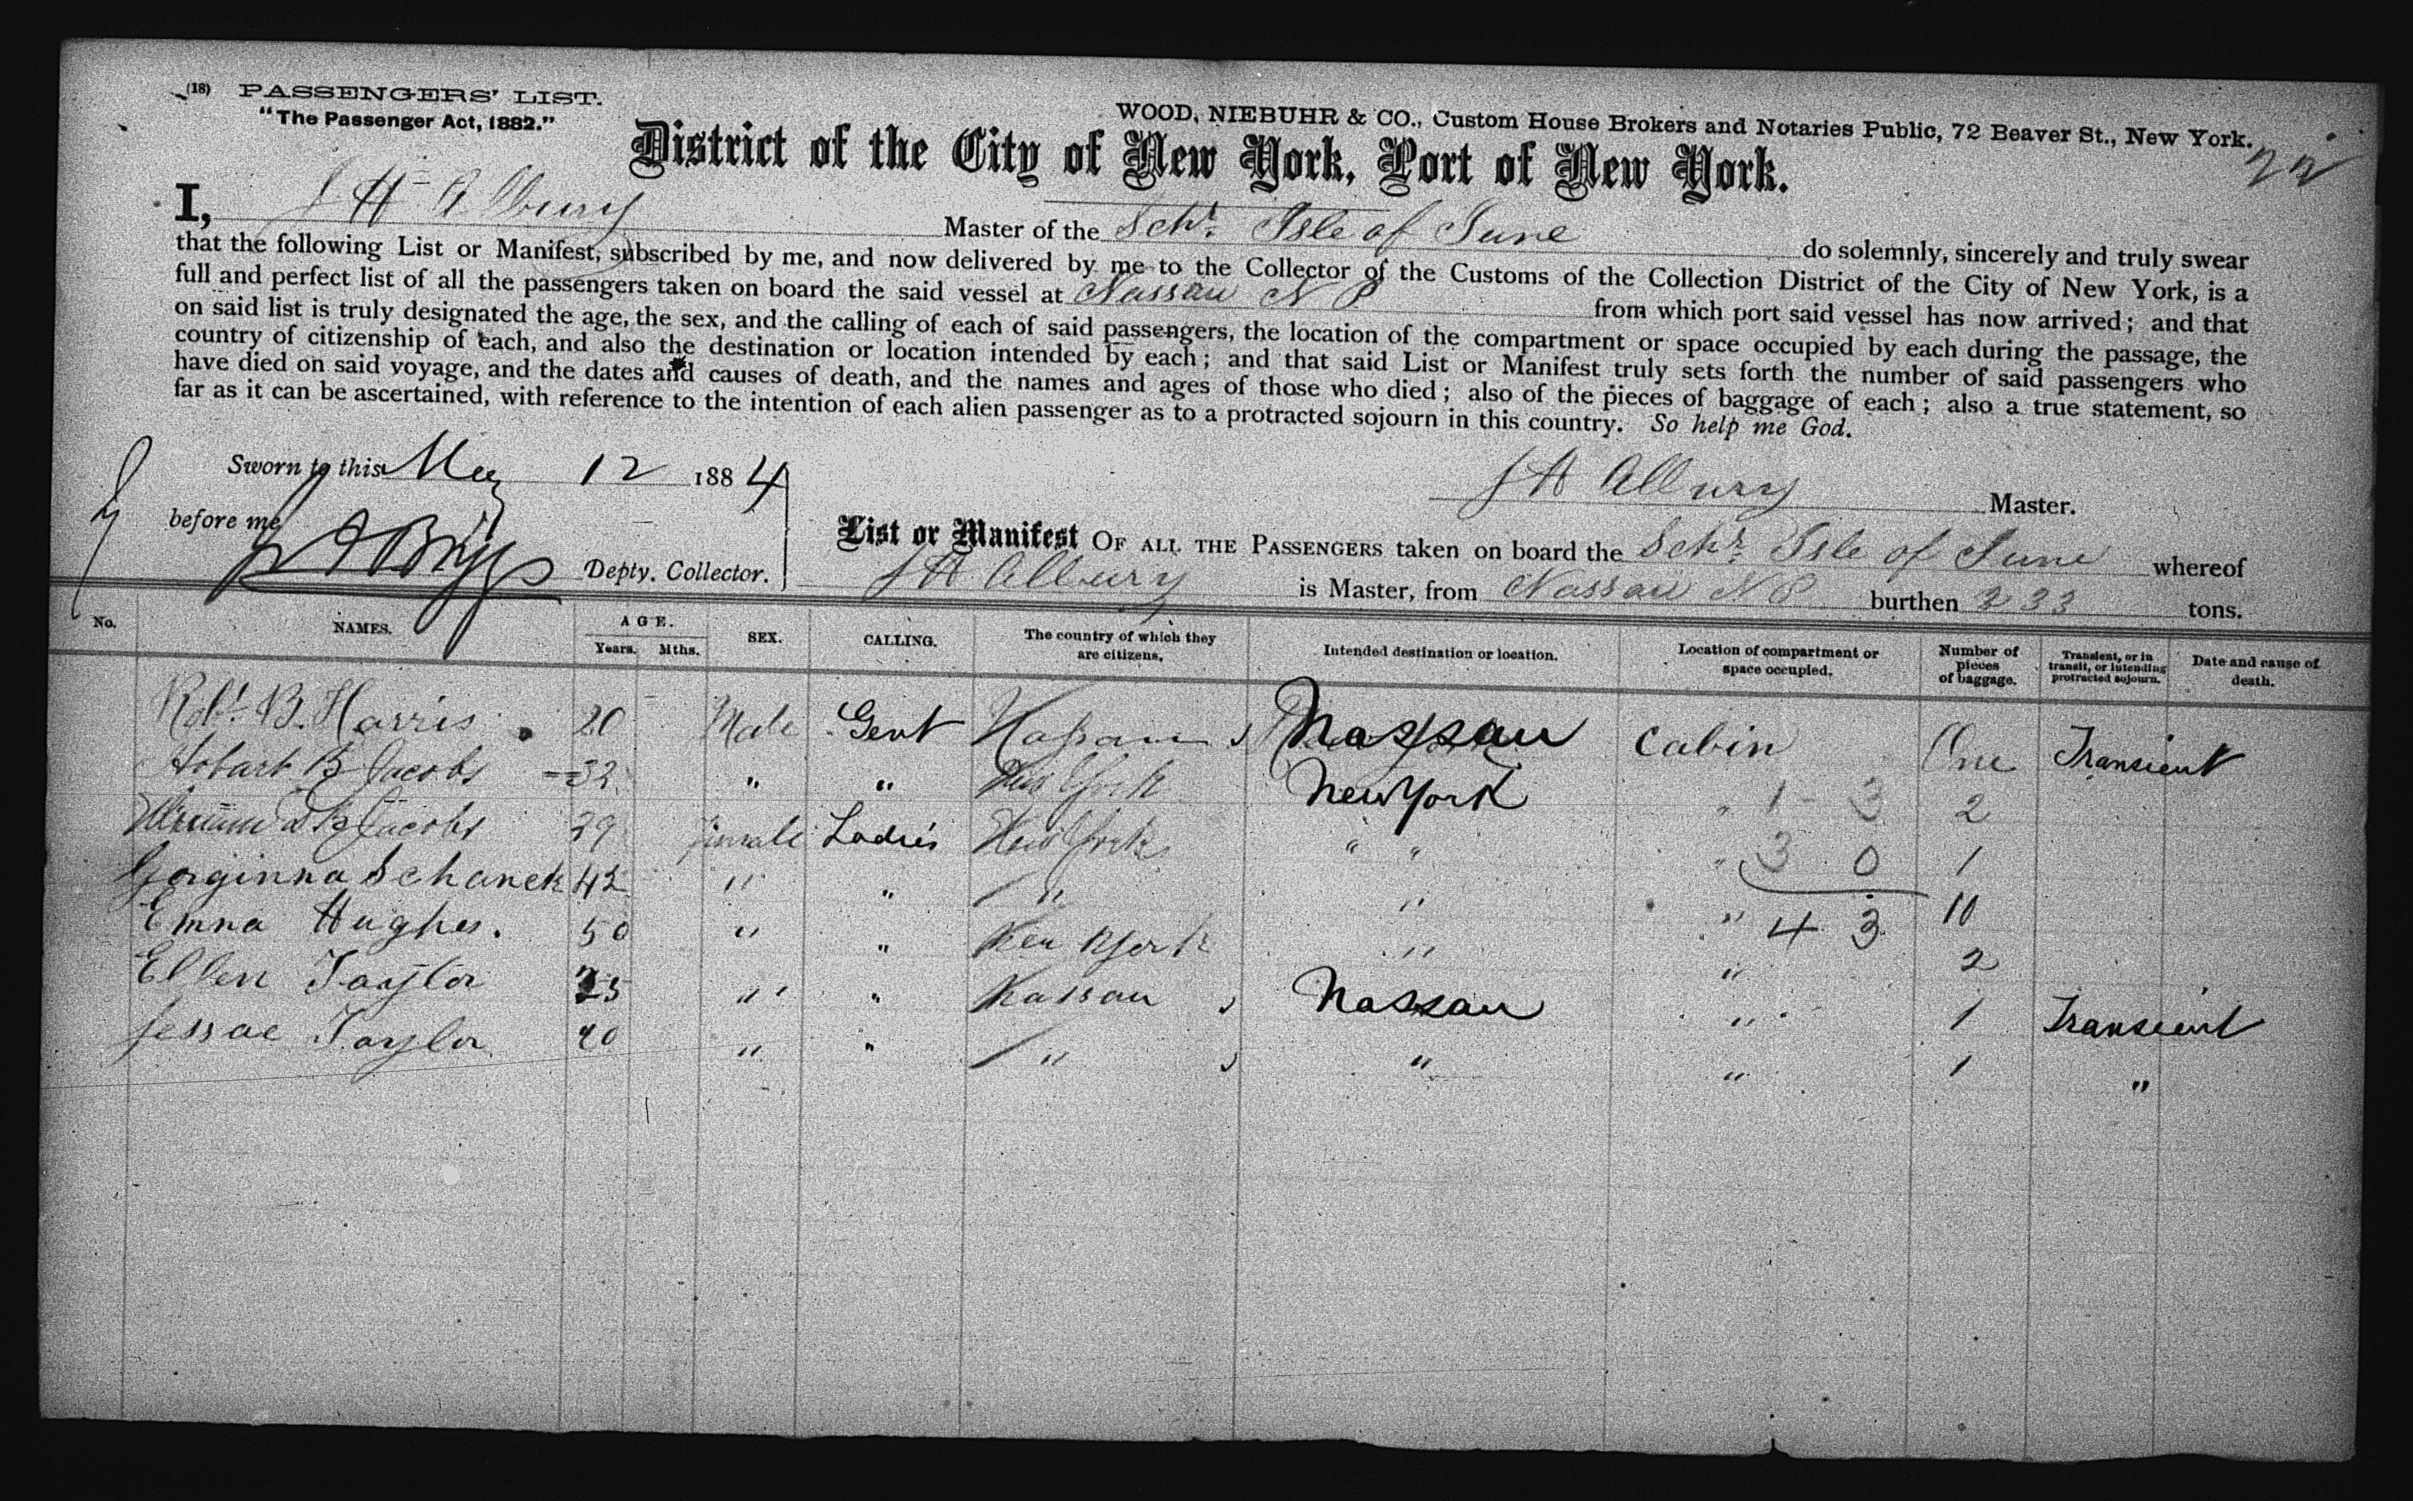 (18) PASSENGERS' LIST.
"The Passenger Act, 1882."
WOOD, NIEBUHR & CO., Custom House Brokers and Notaries Public, 72 Beaver St., New York.
22
District of the City of New York, Port of New York.
I, J H Albury Master of the Schr. Isle of June do solemnly, sincerely and truly swear
that the following List or Manifest, subscribed by me, and now delivered by me to the Collector of the Customs of the Collection District of the City of New York, is a
full and perfect list of all the passengers taken on board the said vessel at Nassau N P from which port said vessel has now arrived; and that
on said list is truly designated the age, the sex, and the calling of each of said passengers, the location of the compartment or space occupied by each during the passage, the
country of citizenship of each, and also the destination or location intended by each; and that said List or Manifest truly sets forth the number of said passengers who
have died on said voyage, and the dates and causes of death, and the names and ages of those who died; also of the pieces of baggage of each; also a true statement, so
far as it can be ascertained, with reference to the intention of each alien passenger as to a protracted sojourn in this country. So help me God.
Sworn to this May 12 1884
J H Albury Master.
before me Briggs Depty. Collector.
List or Manifest OF ALL THE PASSENGERS taken on board the Schr. Isle of June whereof
J H Albury is Master, from Nassau N P burthen 233 tons.
No. NAMES. AGE. Years. Mths. SEX. CALLING. The country of which they are citizens. Intended destination or location. Location of compartment or space occupied. Number of pieces of baggage. Transient, or in transit, or intending protracted sojourn. Date and cause of death.
Robt. B. Harris 20 Male Gent Nassau Nassau Cabin One Transient
Hobart B Jacobs 32 " " New York New York " 1 3 2
Jacobs 29 Female Ladies New York " " " 3 0 1
Gorginna Schanck 42 " " " " " 4 3 10
Emna Hughes. 50 " " New York " " 2
Ellen Taylor 25 " " Nassau Nassau " 1 Transient
Jessae Taylor 20 " " " " " 1 "